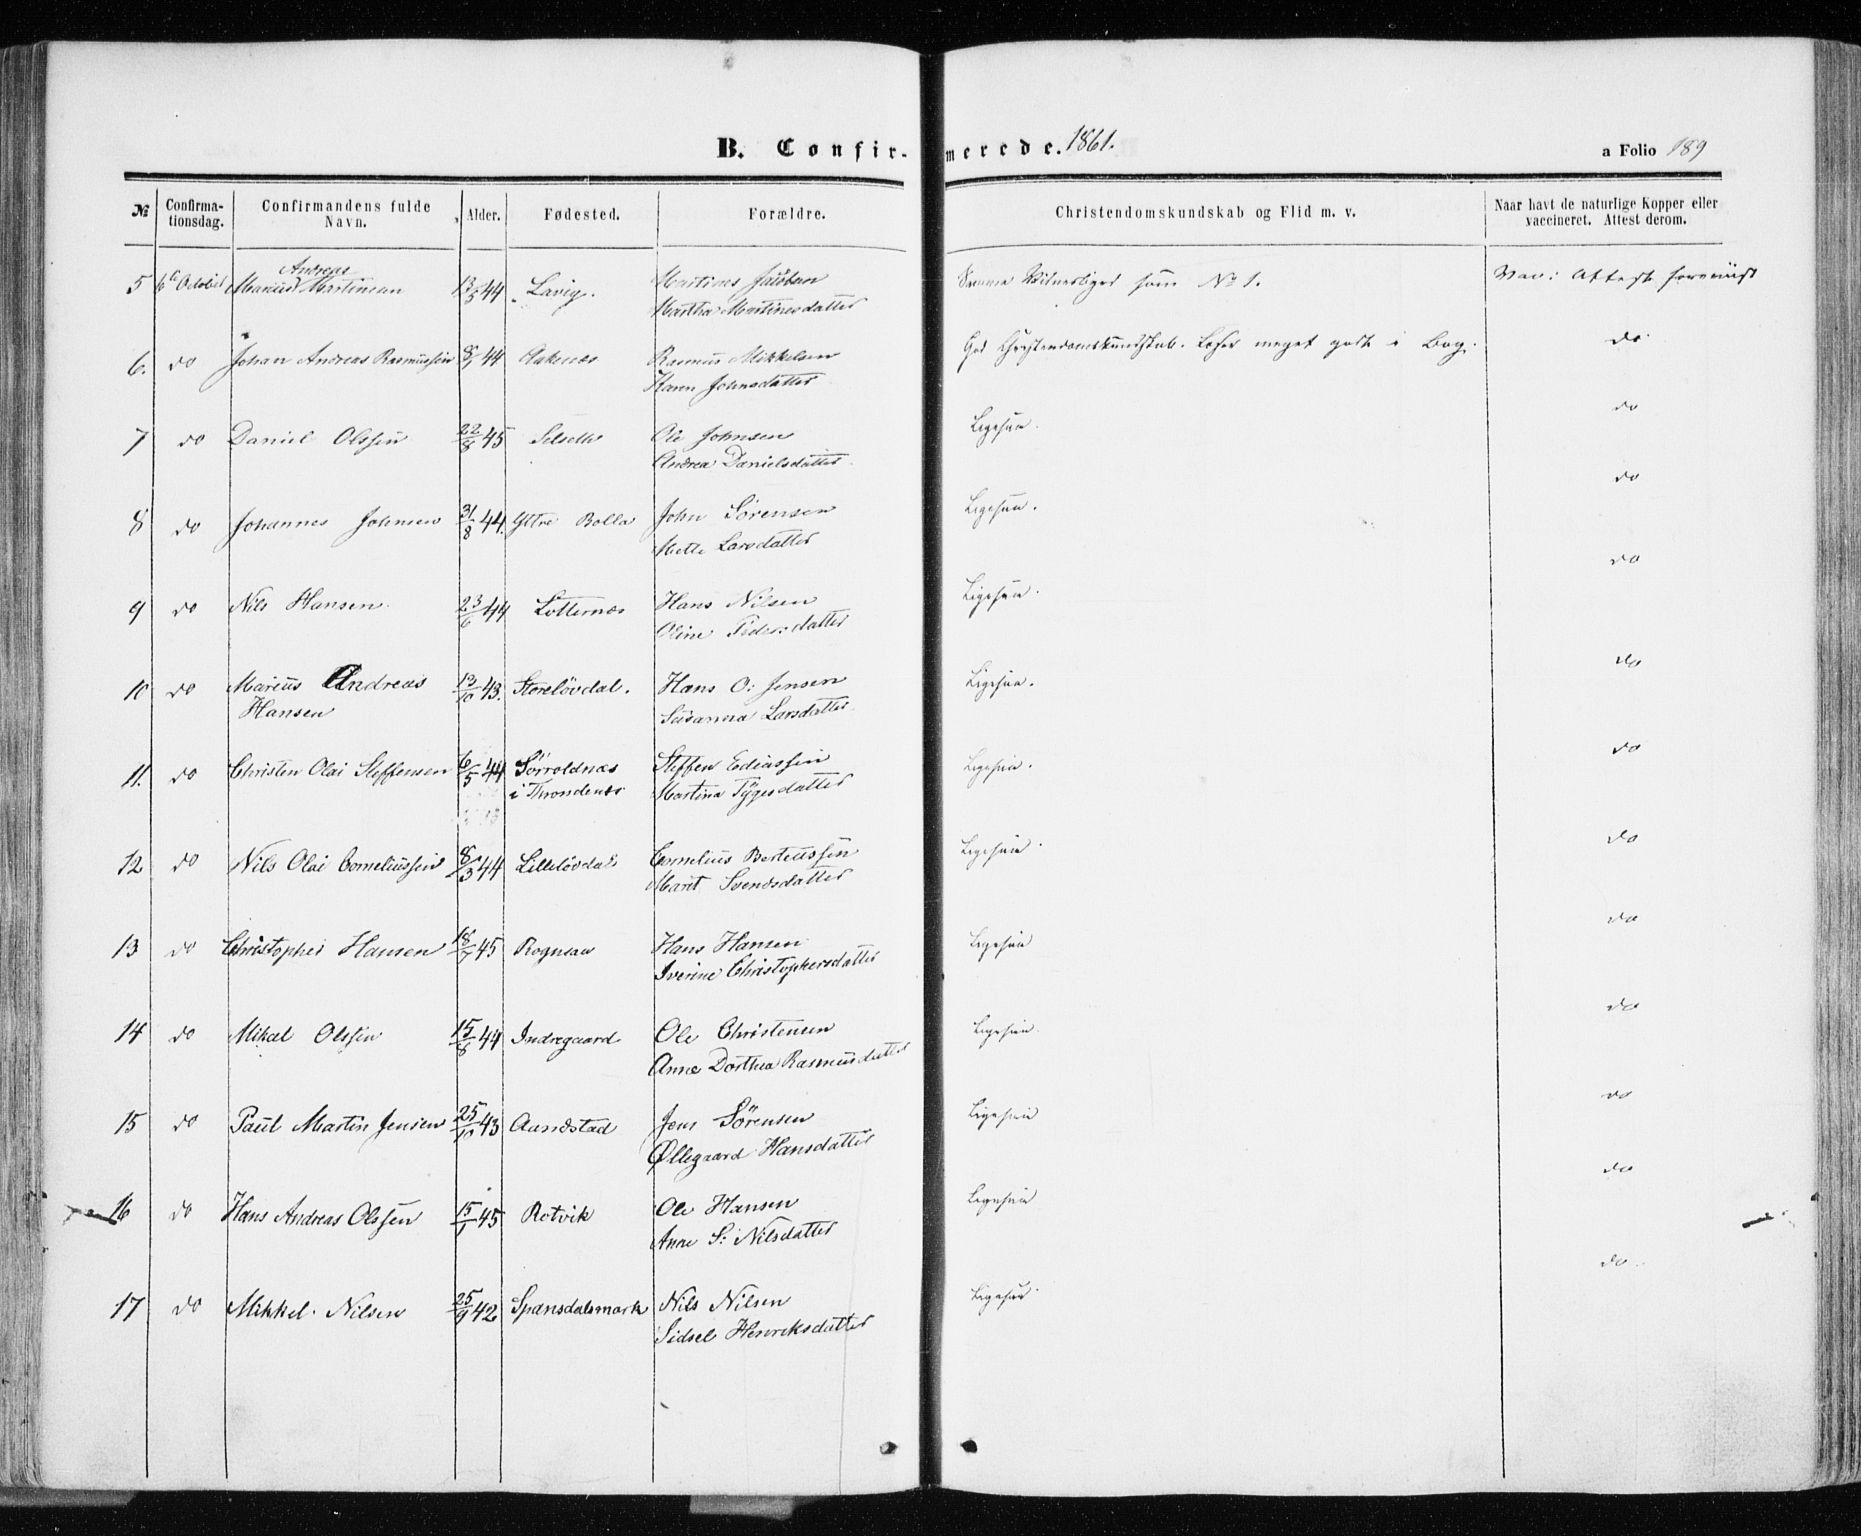 B. Confirmerede. 1861. a Folio 189
№ Confirmationsdag. Confirmandens fulde Navn. Alder. Fødested. Forældre. Christendomskundskab og Flid m. v. Naar havt de naturlige Kopper eller vaccineret. Attest derom.
5 6te October Marius Andreas Martinsen 13/5 44 Lavig. Martines Jakobsen Samme Vidnesbyrd som No 1. Vac: Attest foreviist
Martha Martinesdatter
6. do Johan Andreas Rasmussen 8/1 44 Aaknes Rasmus Mikkelsen God Christendomskundskab. Læser meget godt i Bog. do
Karen Johnsdatter
7 do Daniel Olssen 22/8 45 Selseth Ole Johnsen Ligesaa. do
Andrea Danielsdatter
8 do Johannes Johnsen 31/8 44. Yttre Rolla John Sørensen Ligesaa. do
Mette Larsdatter
9 do Nils Hansen 23/6 44 Lotternæs Hans Nilsen Ligesaa. do
Oline Pedersdatter
10 do Marius Andreas 13/10 43. Storeløvdal. Hans O: Jensen Ligesaa. do
Hansen Susanna Larsdatter
11. do Christen Olai Steffensen 6/5 44 Sørroldnæs Steffen Ediassen Ligesaa. do
i Throndenes Martina Tygesdatter
12 do Nils Olai Corneliussen 8/3 44 Lilleløvdal Cornelius Berteussen Ligesaa. do
Marit Svendsdatter
13 do Christopher Hansen 18/7 45 Rognsaa Hans Hansen Ligesaa do
Iverine Christophersdatter
14 do Mikal Olssen 15/8 44 Indregaard Ole Christensen Ligesaa. do
Anne Dorthea Rasmusdatter
15 do Paul Martin Jensen 25/10 43 Aandstad Jens Sørensen Ligesaa do
Øllegaard Hansdatter
16 do Hans Andreas Olssen 15/1 45 Rotvik Ole Hansen Ligesaa do
Anne S: Nilsdatter
17 do Mikkel Nilsen 25/9 42 Spansdalsmark Nils Nilsen Ligesaa. do
Sidsel Henriksdatter